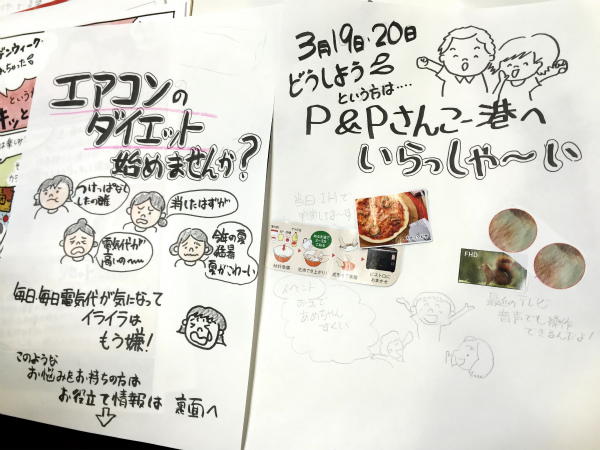 エアコンの
ダイエット
始めませんか?
つけっぱなし
したの誰
消したはずが
電気代が
高いの〜〜
今年の夏
猛暑
夏がこわーい
毎日・毎日電気代が気になって
イライラは
もう嫌!
このような
お悩みをお持ちの方は
お役立て情報は 裏面へ
3月19日・20日
どうしよう
という方は‥‥
P&Pさんこー港へ
いらっしゃ〜い
当日IHで
FHD
最近のテレビ
音声でも操作
できるんだよ!
イベント
お玉で
あめちゃん
すくい